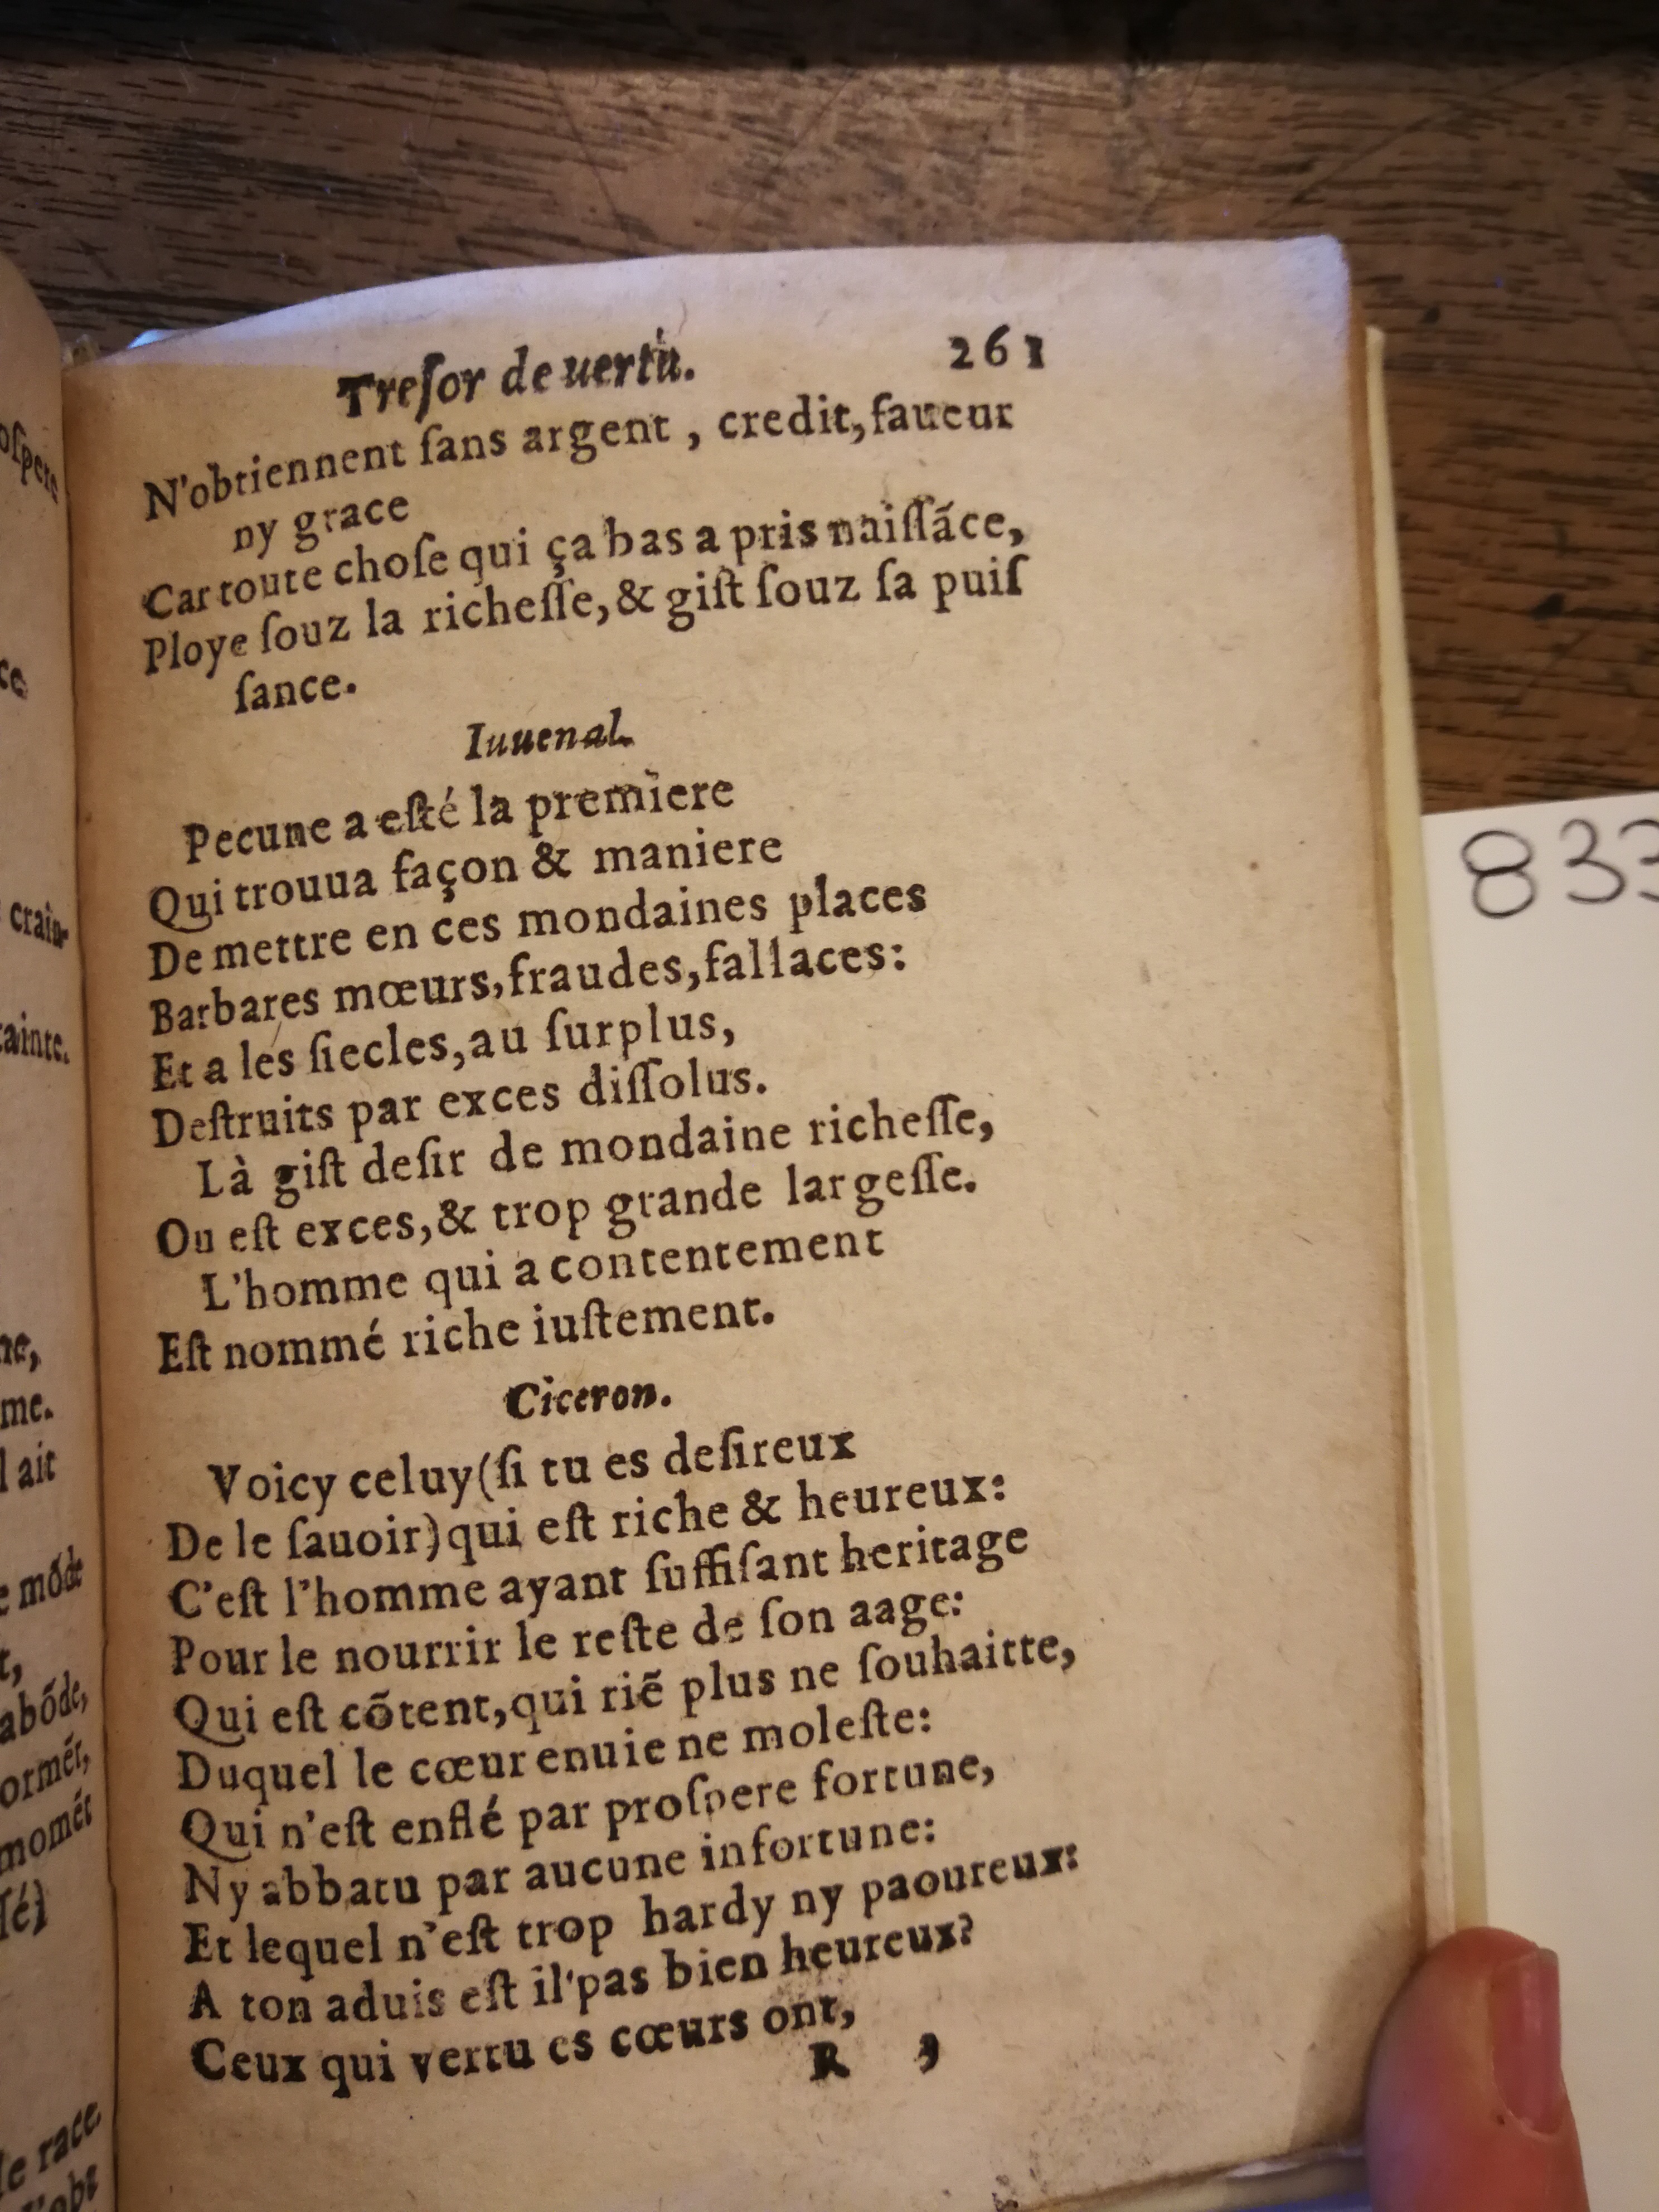 Treſor de uertu.
261
N'obtiennent ſans argent, credit, faueur
ny grace
Car toute choſe qui ça bas a pris naiſſãce,
Ploye ſouz la richeſſe, & giſt ſouz ſa puiſ
ſance.
Iuuenal.
Pecune a eſté la premiere
Qui trouua façon & maniere
De mettre en ces mondaines places
Barbares mœurs, fraudes, fallaces:
Et a les ſiecles, au ſurplus,
Deſtruits par exces diſſolus.
Là giſt deſir de mondaine richeſſe,
Ou eſt exces, & trop grande largeſſe.
L'homme qui a contentement
Eſt nommé riche iuſtement.
Ciceron.
Voicy celuy (ſi tu es deſireux
De le ſauoir) qui eſt riche & heureux:
C'eſt l'homme ayant ſuffiſant heritage
Pour le nourrir le reſte de ſon aage:
Qui eſt cõtent, qui riẽ plus ne ſouhaitte,
Duquel le cœur enuie ne moleſte:
Qui n'eſt enflé par proſpere fortune,
Ny abbatu par aucune infortune:
Et lequel n'eſt trop hardy ny paoureux:
A ton aduis eſt il'pas bien heureux?
Ceux qui vertu es cœurs ont,
R
833
oſpere
ce
crain-
ainte.
ne,
me.
l ait
e mõde
t,
abõde,
ormẽt,
momẽt
ſé)
le race